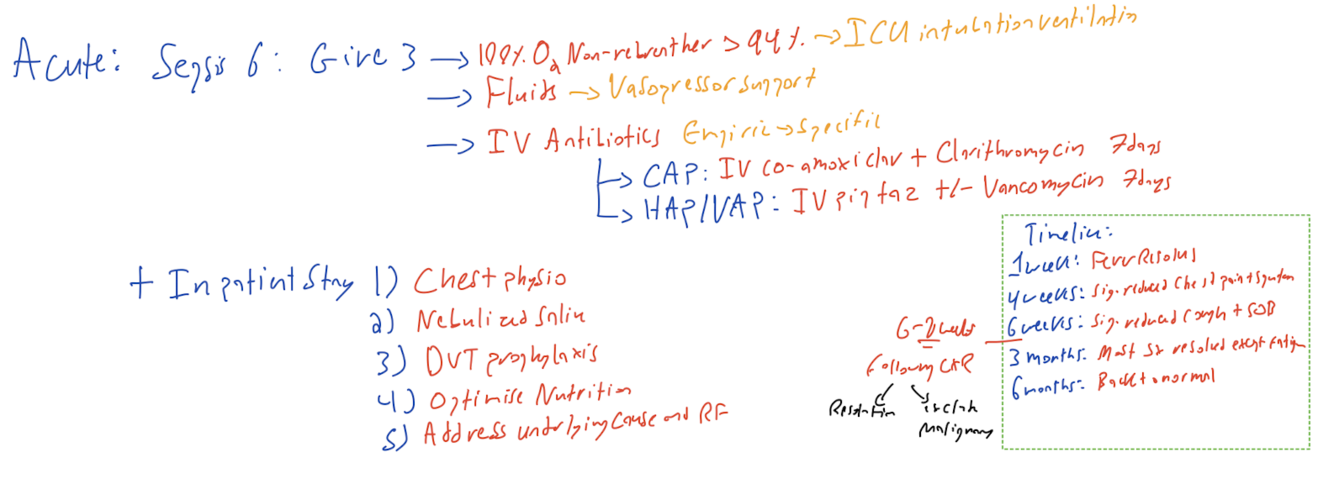 Acute: Sepsis 6: Give 3 → 100% O₂ Non-rebreather > 94% → ICU intubation ventilation
→ Fluids → Vasopressor support
→ IV Antibiotics Empiric → Specific
↳ CAP: IV co-amoxiclav + Clarithromycin 7days
↳ HAP/VAP: IV piptaz +/- Vancomycin 7days
+ Inpatient Stay 1) Chest physio
2) Nebulized Saline
3) DVT prophylaxis
4) Optimise Nutrition
5) Address underlying Cause and RF
6-8 weeks
Following CXR
Resolution
malignancy
Timeline:
1 week: Fever Resolves
4 weeks: Sig. reduced Chest pain + Sputum
6 weeks: Sig. reduced Cough + SOB
3 months: Most Sx resolved except Fatigue
6 months: Back to normal